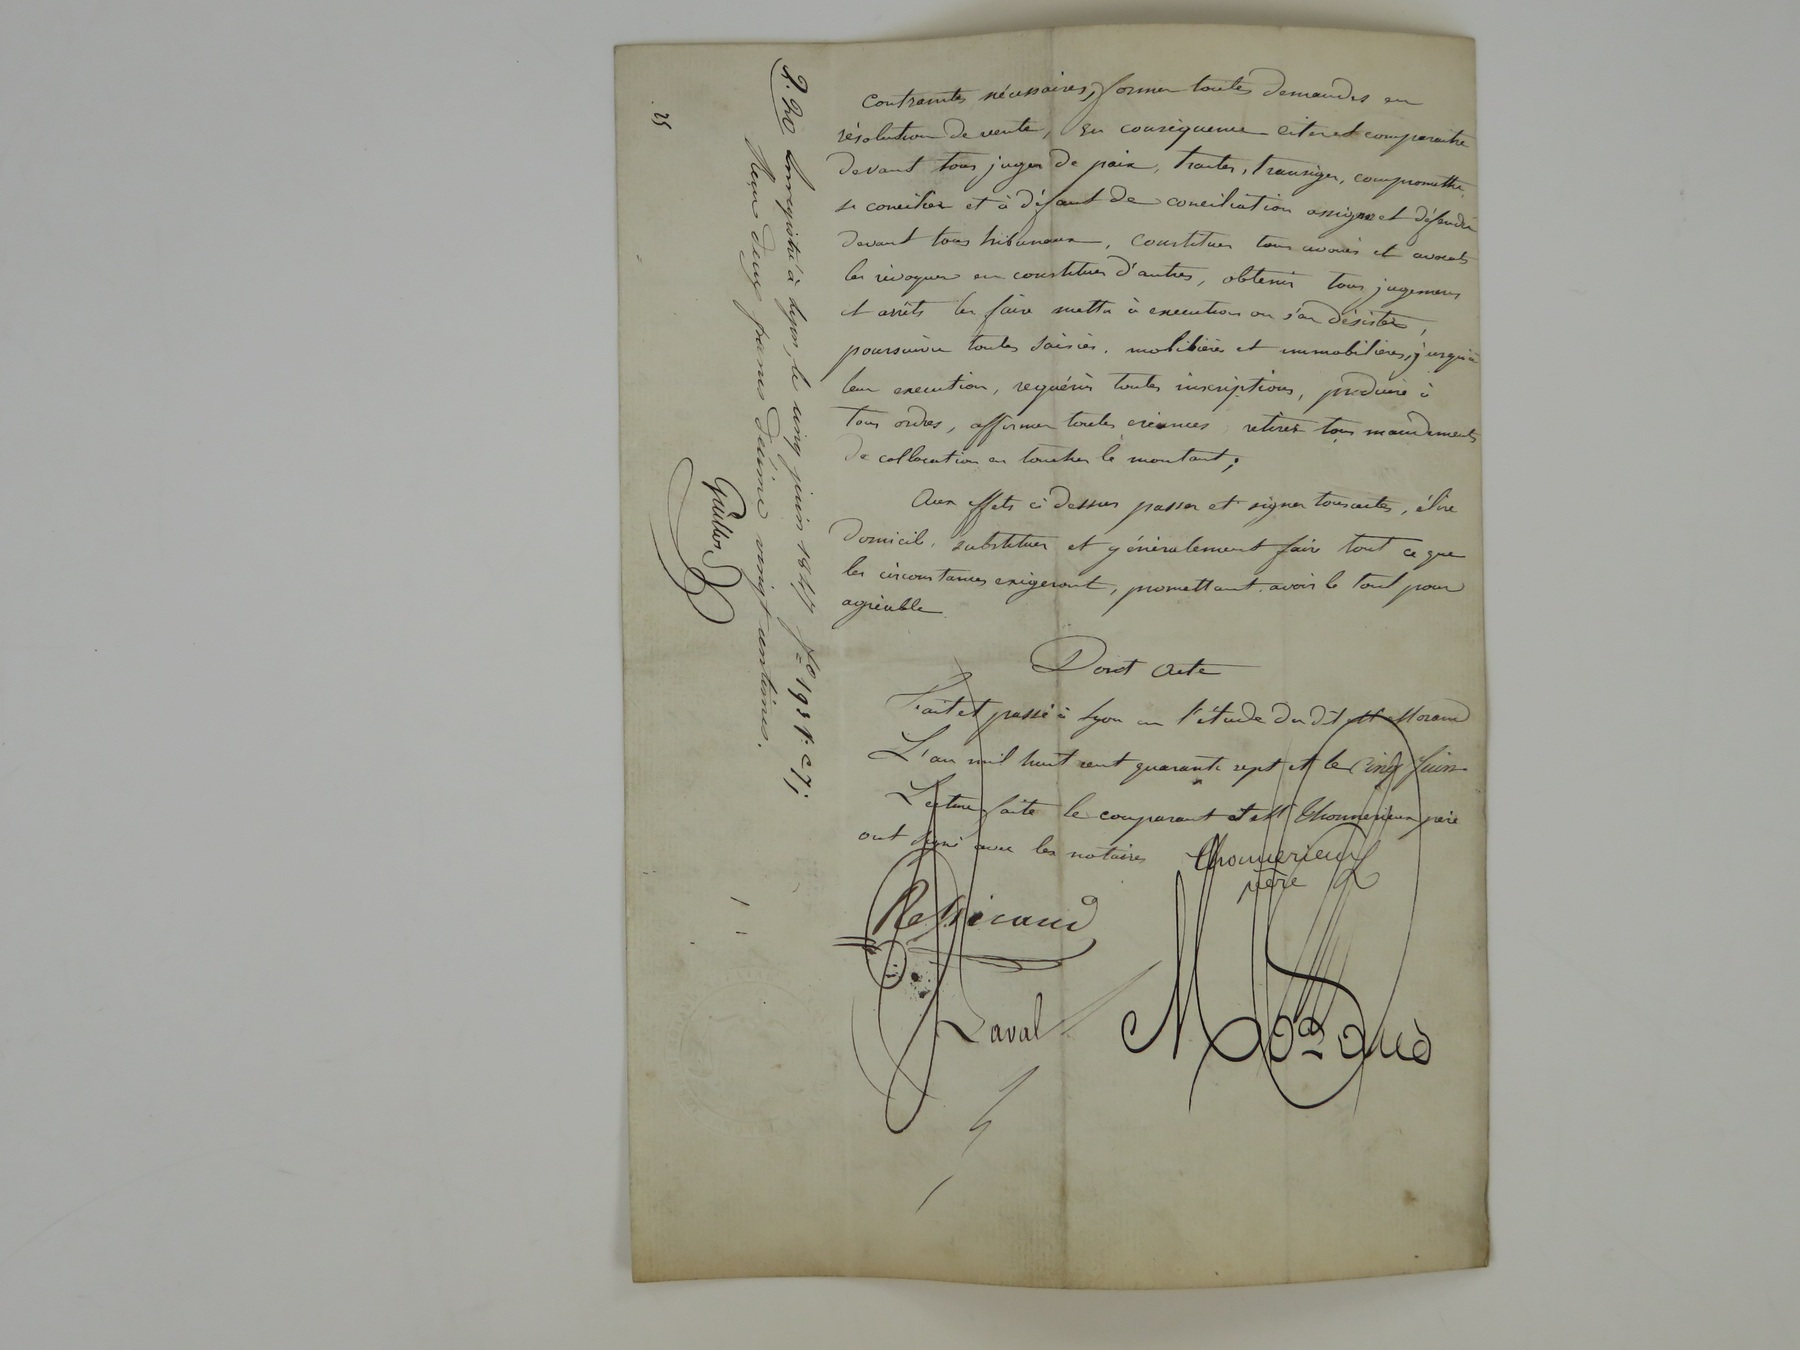 contraintes nécessaires, former toutes demandes en
résolution de vente, en conséquence citer et comparaitre
devant tous juges de paix, traiter, transiger, compromettre,
se concilier et à défaut de conciliation assigner et défendre
devant tous tribunaux, constituer tous avoués et avocats
les révoquer en constituer d'autres, obtenir tous jugemens
et arrêts les faire mettre à execution ou s'en désister,
poursuivre toutes saisies mobilières et immobilières, jusqu'à
leur execution, requérir toutes inscriptions, produire à
tous ordres, affirmer toutes créances, retirer tous mandements
de collocation en toucher le montant;
Aux effets ci dessus passer et signer tous actes, élire
domicile, substituer et généralement faire tout ce que
les circonstances exigeront, promettant avoir le tout pour
agréable
Dont Acte
Fait et passé à Lyon en l'étude du dit Me Morand
L'an mil huit cent quarante sept et le cinq Juin
Lecture faite le comparant et Mr Thomerieux père
ont signé avec les notaires
Thomerieux
père
Laval
Morand
25
R. 20 Enregistré à Lyon, le cinq juin 1847 fo 193 Vo C 7;
Reçu deux francs décime vingt centimes.